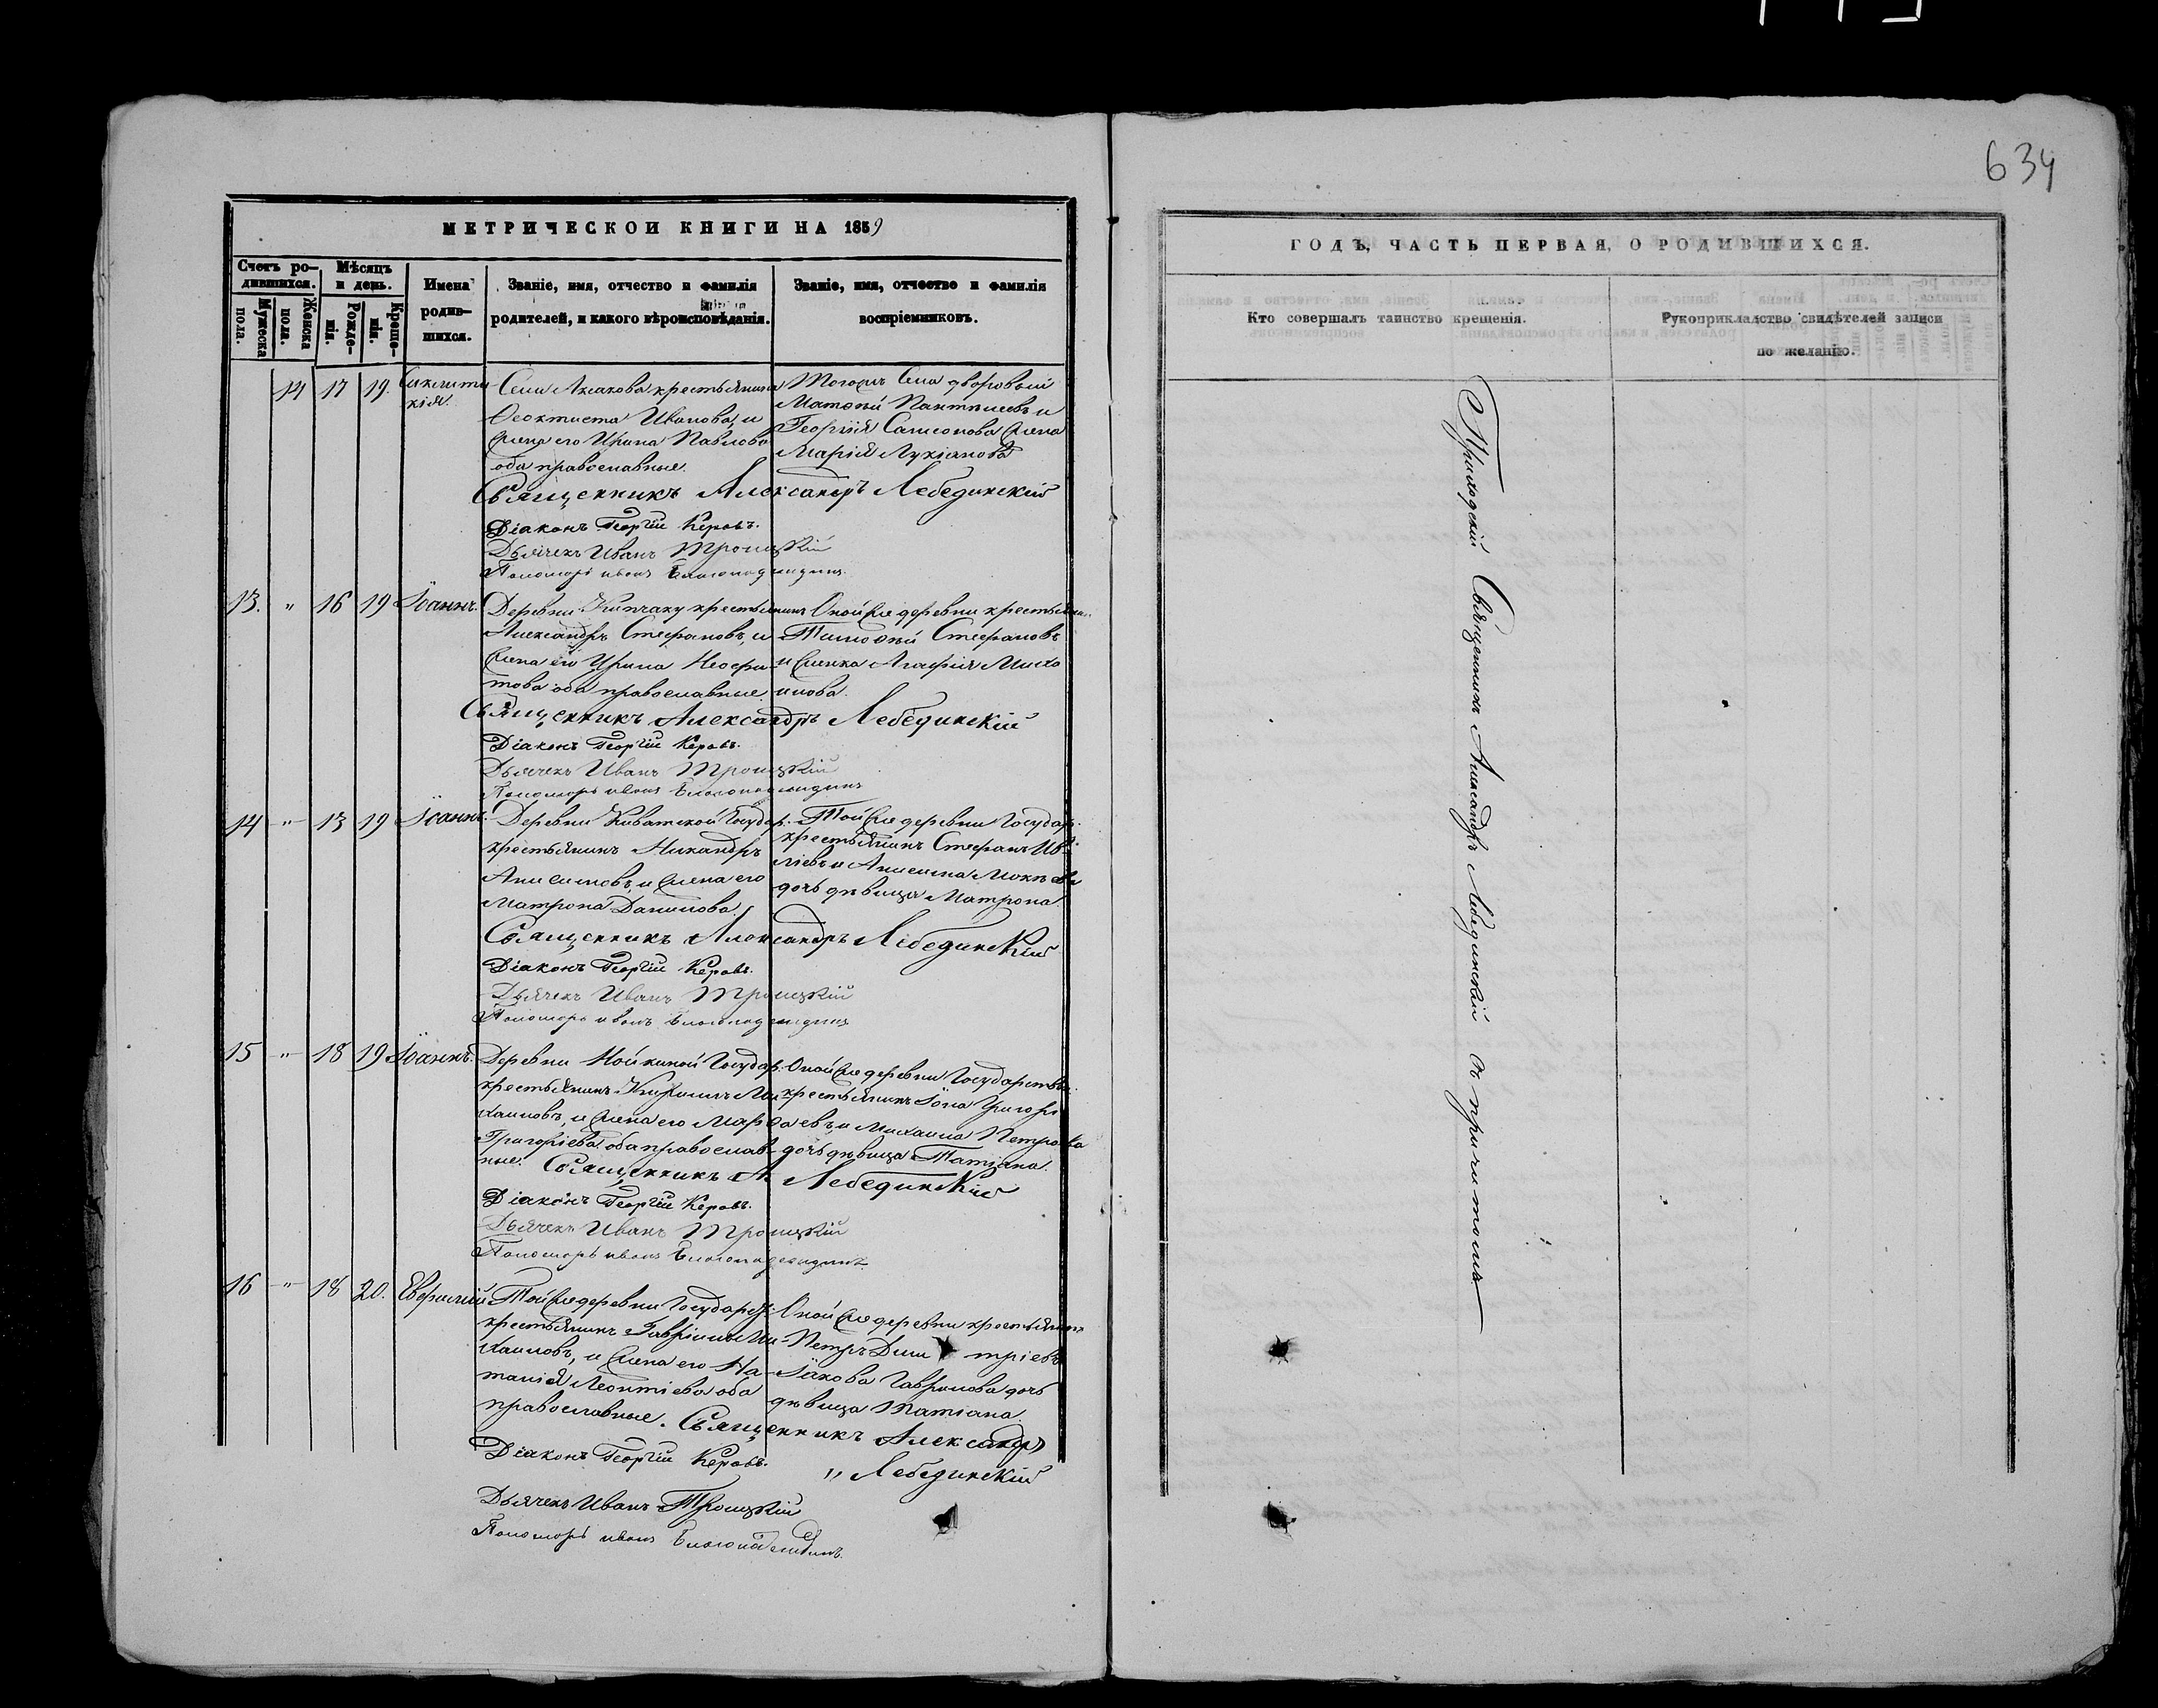 634
МЕТРИЧЕСКОЙ КНИГИ НА 1859
Счетъ ро-
дившихся.
Мужеска пола.
Женска пола.
Мѣсяцъ
и день.
Рожде-
нія.
Креще-
нія.
Имена
родив-
шихся.
Званіе, имя, отчество и фамилія
родителей, и какого вѣроисповѣданія.
Званіе, имя, отчество и фамилія
воспріемниковъ.
14 17 19. Синклити-
кія.
Села Аксакова крестьянина
Ѳеоктиста Иванова, и
жена его Ирина Павлова
оба православные.
Тогожъ села дворовый
Матѳей и
Георгія Самсонова жена
Марія Лукіанова
Священникъ Александръ Лебединскій
Діаконъ Георгій Керовъ.
Дьячекъ Иванъ Троицкій
Пономарь иванъ
13. " 16 19 Іоаннъ.
Деревни Кипчаку крестьянинъ
Александръ Стефановъ, и
жена его Ирина Неофи-
това оба православные
Оной же деревни крестьянинъ
Тимоѳей Стефановъ
и женка Агафія Миха
илова.
Священникъ Александръ Лебединскій
Діаконъ Георгій Керовъ.
Дьячекъ Иванъ Троицкій
Пономарь иванъ
14 " 13 19 Іоаннъ.
Деревни Киватской Государ.
крестьянинъ Никандръ
Анисимовъ, и жена его
Матрона Данилова.
Той же деревни Государ.
крестьянинъ Стефанъ
и Анисима
дочь дѣвица Матрона.
Священникъ Александръ Лебединскій
Діаконъ Георгій Керовъ.
Дьячекъ Иванъ Троицкій
Пономарь иванъ
15 " 18 19 Іоаннъ.
Деревни Мойкиной Государ.
крестьянинъ Кирилъ Ми-
хаиловъ, и жена его Марѳа
Григоріева оба православ-
ные.
Оной же деревни Государств.
крестьянинъ Іона Григорі
евъ, и Михаила Петрова
дочь дѣвица Татіана.
Священникъ А. Лебединскій
Діаконъ Георгій Керовъ.
Дьячекъ Иванъ Троицкій
Пономарь иванъ
16 " 18 20. Евфимій
Той же деревни Государст.
крестьянинъ Гавріилъ Ми-
хаиловъ, и жена его На-
талія Леонтіева оба
православные.
Оной же деревни крестьянинъ
Петръ Дими тріевъ
Іакова Гаврилова дочь
дѣвица Татіана.
Священникъ Александръ
" Лебединскій
Діаконъ Георгій Керовъ.
Дьячекъ Иванъ Троицкій
Пономарь иванъ
ГОДЪ, ЧАСТЬ ПЕРВАЯ, О РОДИВШИХСЯ.
Кто совершалъ таинство крещенія.
Рукоприкладство свидѣтелей записи
по желанію.
Приходскій Священникъ Александръ Лебединскій съ причтомъ